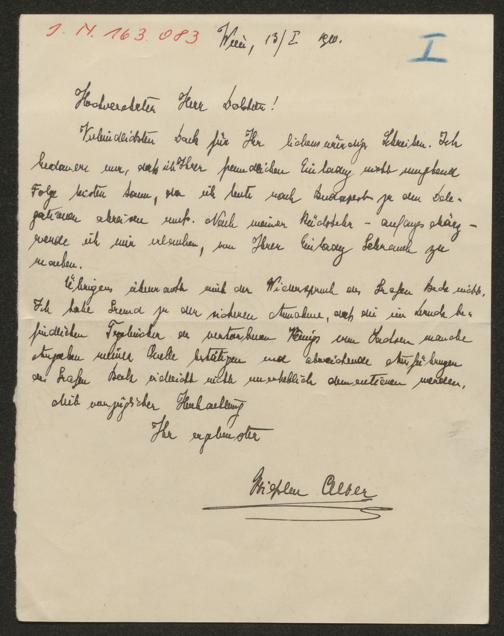 J. N. 163.083
Wien, 13/I 1910.
I
Hochverehrter Herr Doktor!
Verbindlichsten Dank für Ihr liebenswürdiges Schreiben. Ich
bedauere nur, daß ich Ihrer freundlichen Einladung nicht umgehend
Folge leisten kann, da ich heute nach Budapest zu den Dele-
gationen abreisen muß. Nach meiner Rückkehr – anfangs März –
werde ich mir erlauben, von Ihrer Einladung Gebrauch zu
machen.
Übrigens überrascht mich der Widerspruch des Grafen nicht.
Ich habe Grund zu der sicheren Annahme, daß die im be-
findlichen Tagebücher des verstorbenen Königs von Sachsen manche
Angaben meiner Quelle bestätigen und abweichende Ausführungen
des Grafen vielleicht nicht unerheblich dementieren werden.
Mit vorzüglicher Hochachtung
Ihr ergebenster